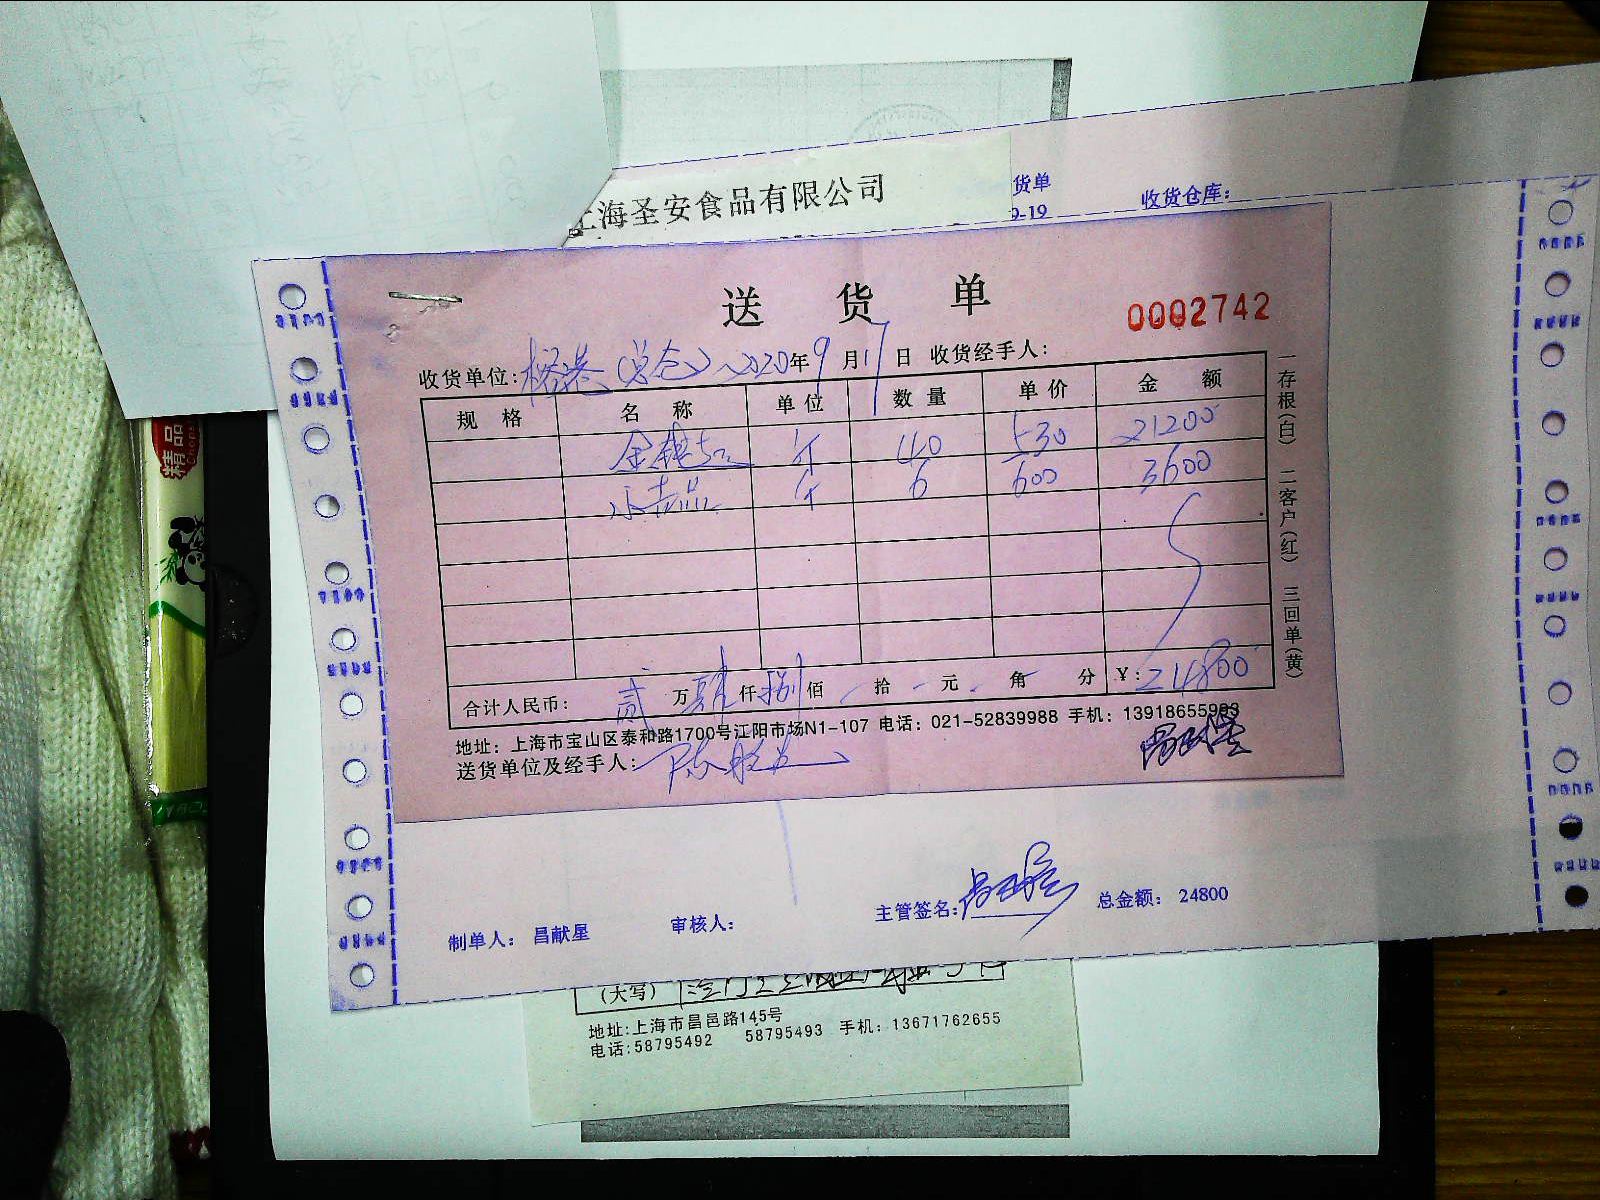 上海圣安食品有限公司
货单
9-19
收货仓库:
送货单
0002742
收货单位: (总仓) 2020年9月17日 收货经手人:
规格 名称 单位 数量 单价 金额
件 40 530 21200
件 6 600 3600
合计人民币: 贰万肆仟捌佰 拾 元 角 分 ¥: 24800
地址: 上海市宝山区泰和路1700号江阳市场N1-107 电话: 021-52839988 手机: 13918655993
送货单位及经手人:
一存根(白) 二客户(红) 三回单(黄)
制单人: 昌献星 审核人: 主管签名: 总金额: 24800
(大写)
地址:上海市昌邑路145号
电话:58795492 58795493 手机: 13671762655
精品